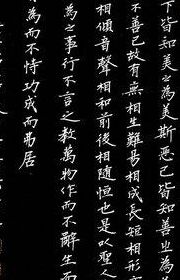 下皆知美之為美斯惡已皆知善也為
不善已故有無相生難易相成長短相形
相傾音聲相和前後相隨恒也是以聖人
為之事行不言之教萬物作而不辭生而
為而不恃功成而弗居